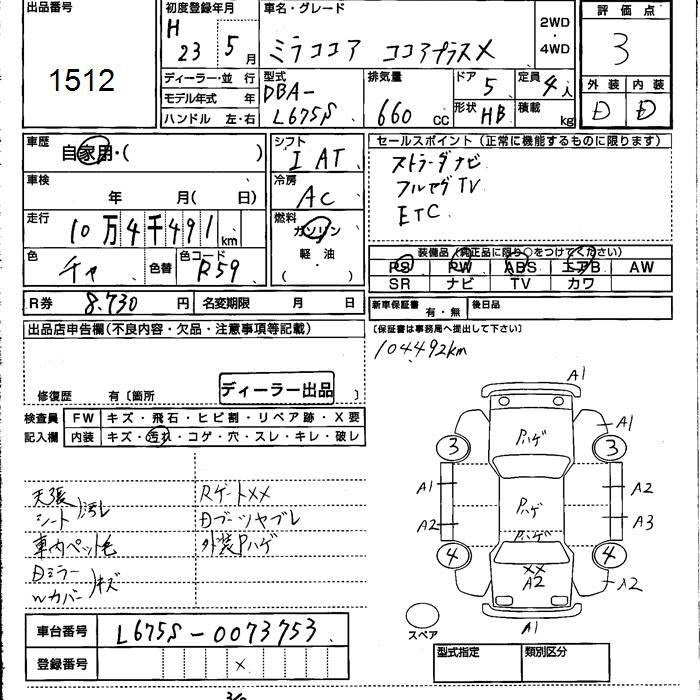 出品番号
1512
初度登録年月
H
23 5月
車名・グレード
ミラココア ココアプラスX
2WD
・
4WD
評価点
3
外装 内装
D D
ディーラー・並行
モデル年式 年
ハンドル 左・右
型式
DBA-
L675S
排気量
660 cc
ドア 5
形状 HB
定員 4人
積載 kg
車歴
自家用・( )
車検
年 月( 日)
走行
10万4千491km
色
チャ
色替
色コード
R59
R券 8,730 円 名変期限 月 日
シフト
I AT
冷房
AC
燃料
ガソリン
(軽・油)
セールスポイント(正常に機能するものに限ります)
ストラーダナビ
フルセグTV
ETC
装備品(純正品に限り○をつけてください)
PS PW ABS エアB AW
SR ナビ TV カワ
新車保証書 有・無 後日品
(保証書は事務局へ提出して下さい)
104492km
出品店申告欄(不良内容・欠品・注意事項等記載)
修復歴 有〔箇所 〕
ディーラー出品
検査員 FW キズ・飛石・ヒビ割・リペア跡・X要
記入欄 内装 キズ・汚れ・コゲ・穴・スレ・キレ・破レ
天張
シート 汚レ
車内ペット毛
Dミラー
Wカバー キズ
RゲートXX
Dブーツヤブレ
外装Pハゲ
A1
A1
Pハゲ
3 3
A1 A2
Pハゲ
A2 A3
Pハゲ
4 4
XX
A2
A2
A1
スペア
車台番号 L675S-0073753
登録番号 ×
型式指定 類別区分